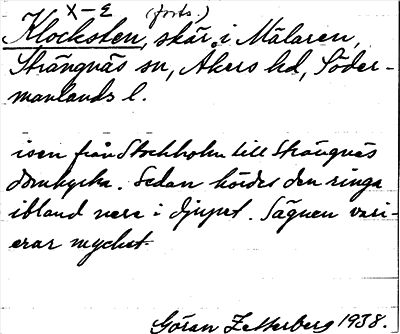 X-E (forts.)
Klocksten, skär i Mälaren,
Strängnäs sn, Åkers hd, Söder-
manlands l.
isen från Stockholm till Strängnäs
domkyrka. Sedan hördes den ringa
ibland nere i djupet. Sägnen vari-
erar mycket.
Göran Zetterberg 1938.